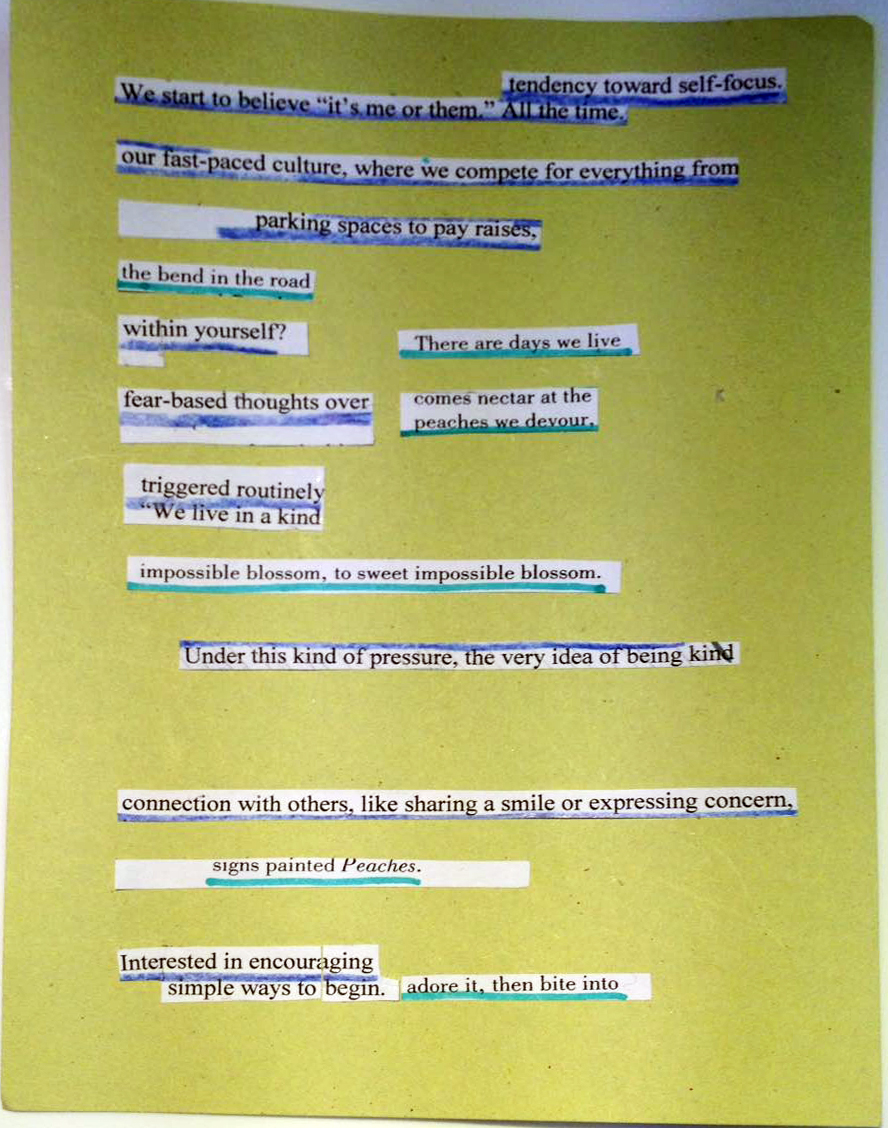 tendency toward self-focus.
We start to believe “it’s me or them.” All the time.
our fast-paced culture, where we compete for everything from
parking spaces to pay raises,
the bend in the road
within yourself?
There are days we live
fear-based thoughts over
comes nectar at the
peaches we devour,
triggered routinely
“We live in a kind
impossible blossom, to sweet impossible blossom.
Under this kind of pressure, the very idea of being kind
connection with others, like sharing a smile or expressing concern,
signs painted Peaches.
Interested in encouraging
simple ways to begin.
adore it, then bite into